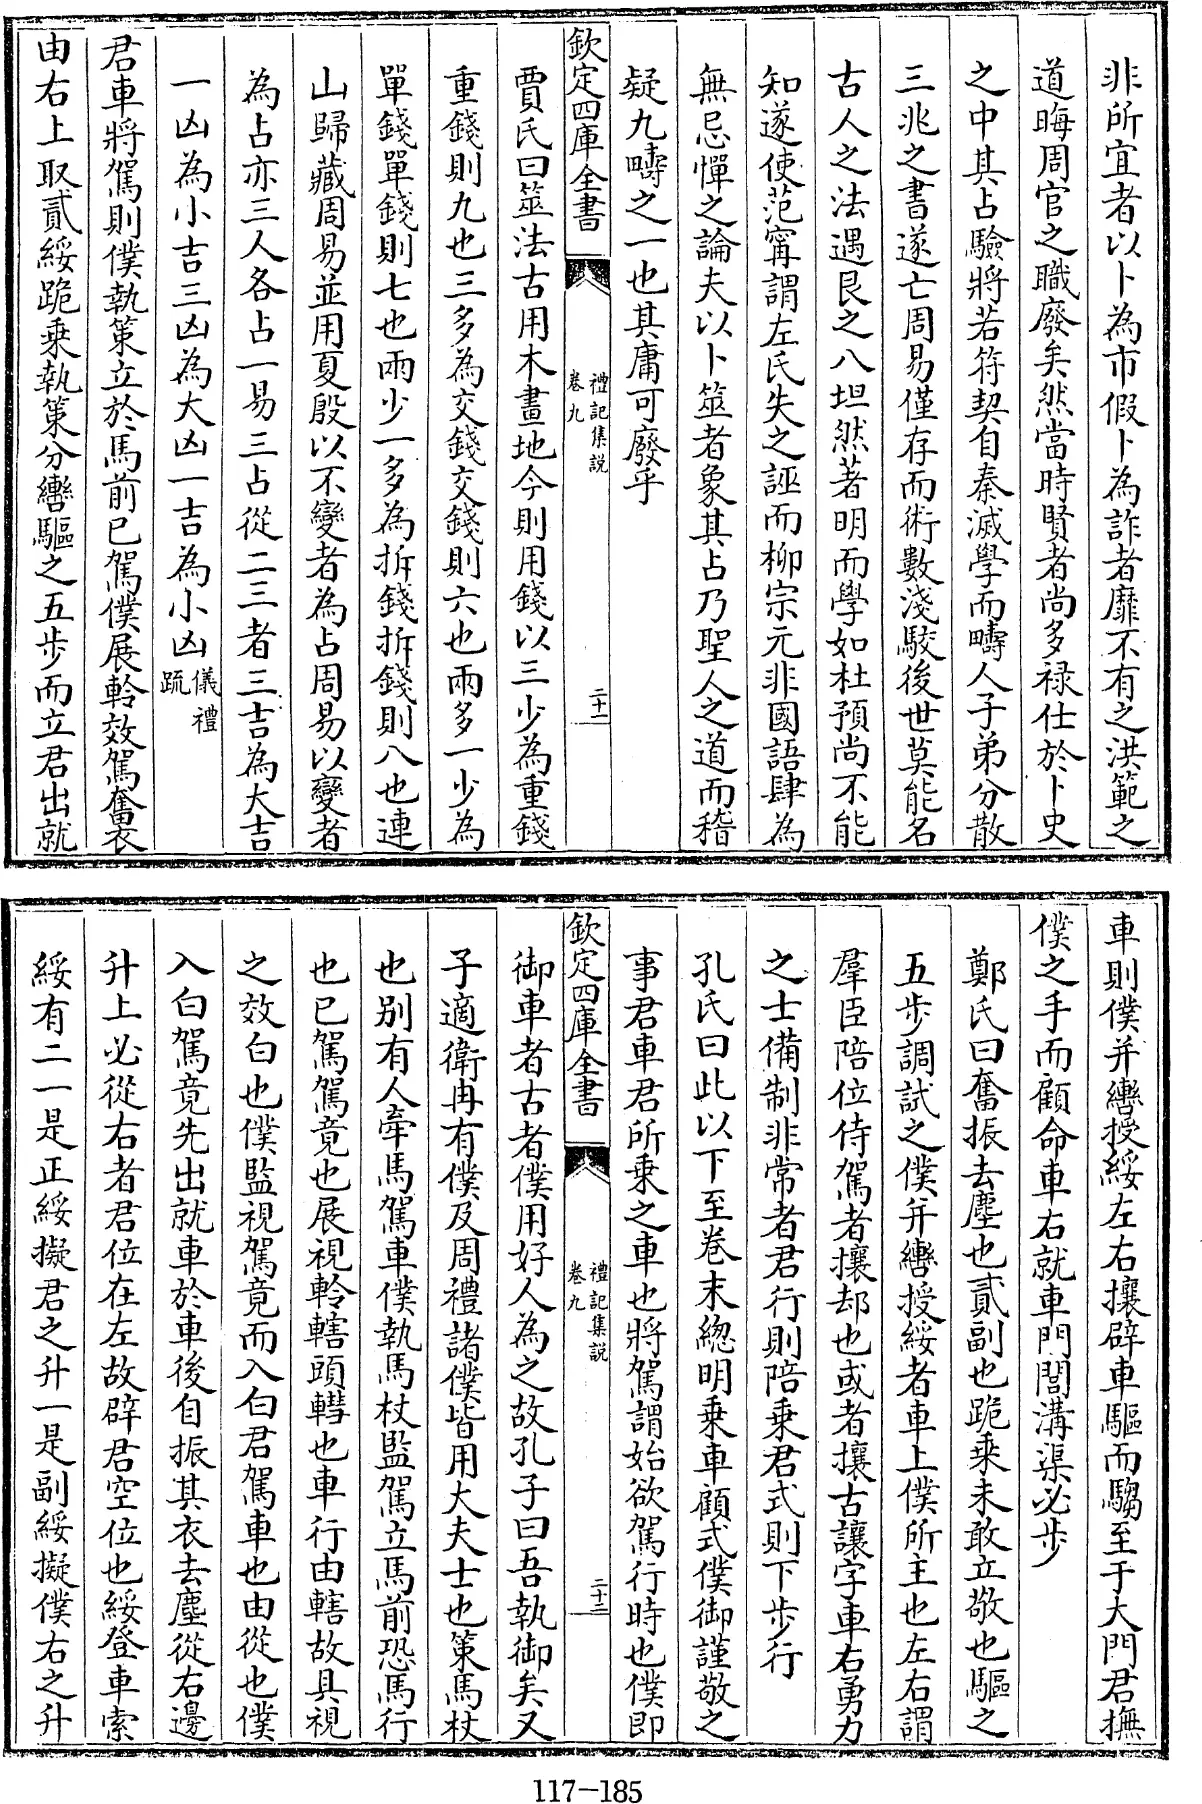 非所宜者以卜為市假卜為詐者靡不有之洪範之
道晦周官之職廢矣然當時賢者尚多禄仕於卜史
之中其占驗將若符契自秦滅學而疇人子弟分散
三兆之書遂亡周易僅存而術數淺駮後世莫能名
古人之法遇艮之八坦然著明而學如杜預尚不能
知遂使范甯謂左氏失之誣而柳宗元非國語肆為
無忌憚之論夫以卜筮者象其占乃聖人之道而稽
疑九疇之一也其庸可廢乎
欽定四庫全書
禮記集説
卷九
二十一
賈氏曰筮法古用木畫地今則用錢以三少為重錢
重錢則九也三多為交錢交錢則六也兩多一少為
單錢單錢則七也兩少一多為拆錢拆錢則八也連
山歸藏周易並用夏殷以不變者為占周易以變者
為占亦三人各占一易三占從二三者三吉為大吉
一凶為小吉三凶為大凶一吉為小凶儀禮疏
君車將駕則僕執策立於馬前已駕僕展軨效駕奮衣
由右上取貳綏跪乗執策分轡驅之五步而立君出就
車則僕并轡授綏左右攘辟車驅而騶至于大門君撫
僕之手而顧命車右就車門閭溝渠必步
鄭氏曰奮振去塵也貳副也跪乗未敢立敬也驅之
五步調試之僕并轡授綏者車上僕所主也左右謂
羣臣陪位侍駕者攘却也或者攘古讓字車右勇力
之士備制非常者君行則陪乗君式則下步行
孔氏曰此以下至卷末總明乗車顧式僕御謹敬之
事君車君所乗之車也將駕謂始欲駕行時也僕即
欽定四庫全書
禮記集説
卷九
二十二
御車者古者僕用好人為之故孔子曰吾執御矣又
子適衛冉有僕及周禮諸僕皆用大夫士也策馬杖
也别有人牽馬駕車僕執馬杖監駕立馬前恐馬行
也已駕駕竟也展視軨轄頭轊也車行由轄故具視
之效白也僕監視駕竟而入白君駕車也由從也僕
入白駕竟先出就車於車後自振其衣去塵從右邊
升上必從右者君位在左故辟君空位也綏登車索
綏有二一是正綏擬君之升一是副綏擬僕右之升
117-185